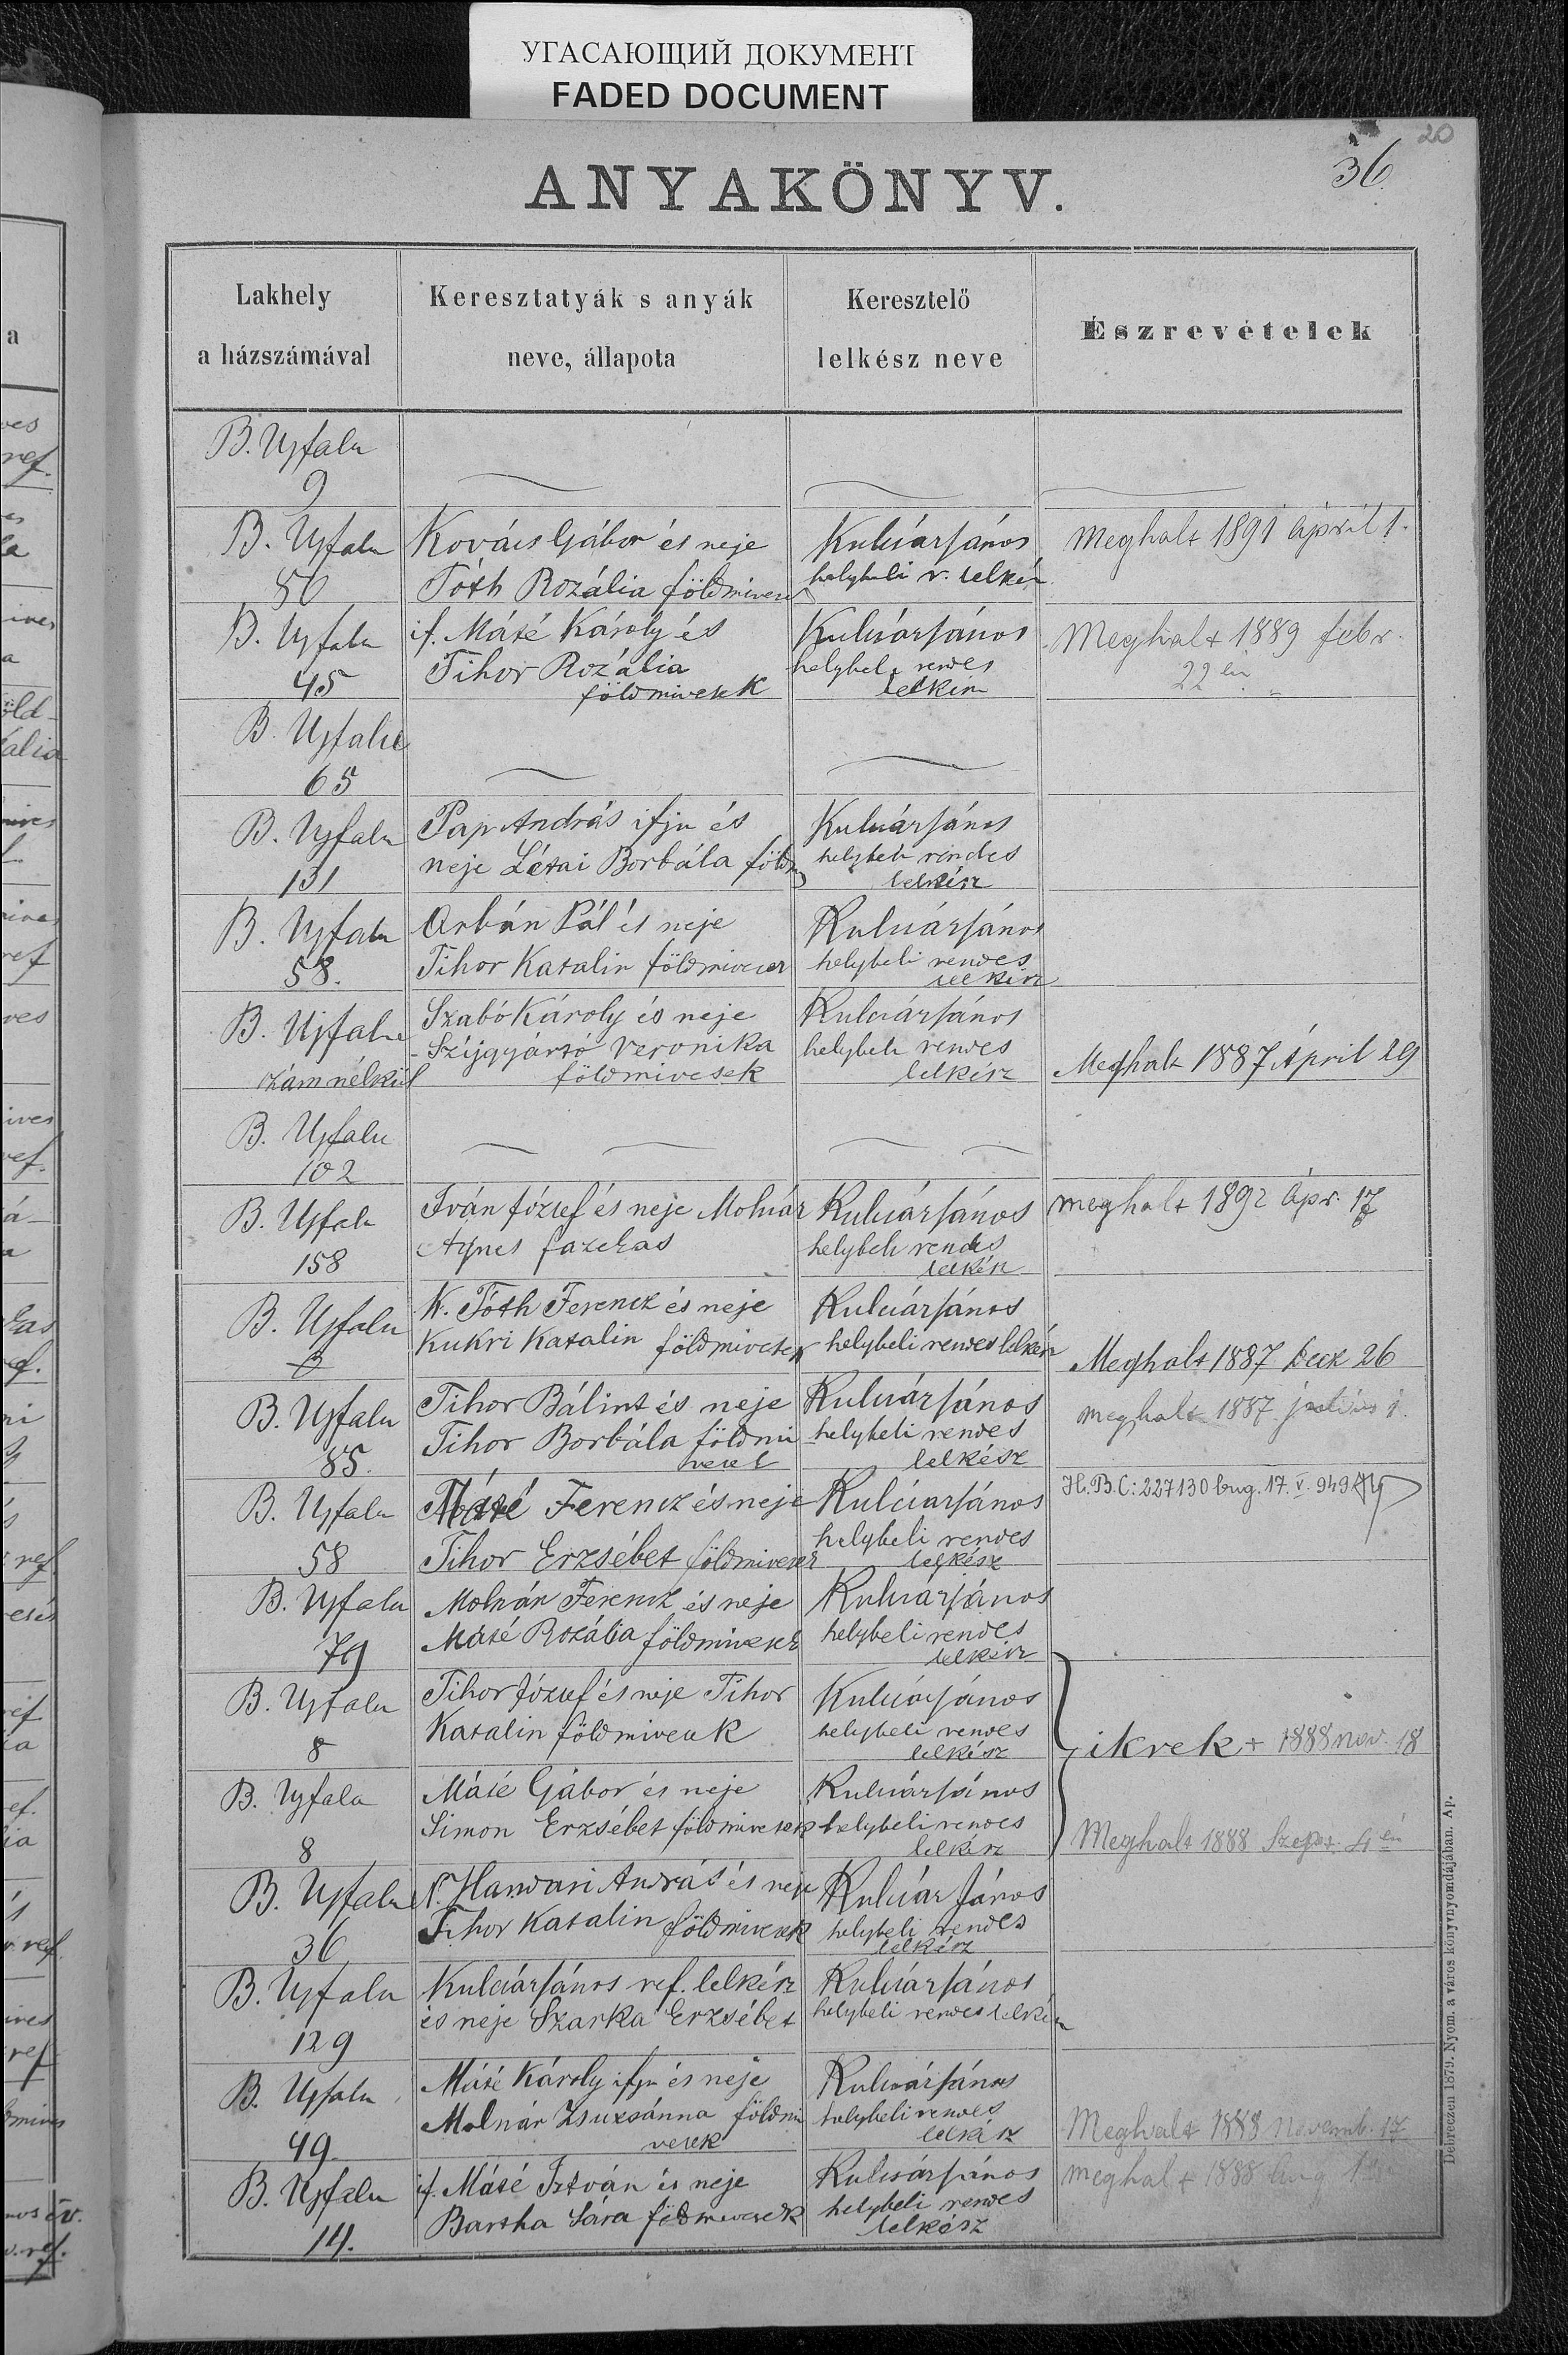 УГАСАЮЩИЙ ДОКУМЕНТ
FADED DOCUMENT
20
36.
ANYAKÖNYV.
Lakhely
a házszámával
Keresztatyák s anyák
neve, állapota
Keresztelő
lelkész neve
Észrevételek
B. Ujfalu
9
B. Ujfalu
Kovács Gábor és neje
Kulcár János
Meghalt 1891 Április 1.
56
Tóth Rozália földmivesek
helybeli r. lelkész
B. Ujfalu
if. Máté Károly és
Kulcár János
Meghalt 1889 febr.
45
Tihor Rozália
helybeli rendes
22 én
földmivesek
lelkész
B. Ujfalu
65
B. Ujfalu
Pap András ifju és
Kulcár János
131
neje Létai Borbála földm
helybeli rendes
lelkész
B. Ujfalu
Orbán Pál és neje
Kulcár János
58.
Tihor Katalin földmivesek
helybeli rendes
lelkész
B. Ujfalu
Szabó Károly és neje
Kulcár János
szám nélkül
Szijgyártó Veronika
helybeli rendes
földmivesek
lelkész
Meghalt 1887 Április 29
B. Ujfalu
102
B. Ujfalu
Iván József és neje Molnár
Kulcár János
meghalt 1892 Ápr. 17
158
Ágnes fazekas
helybeli rendes
lelkész
B. Ujfalu
K. Tóth Ferencz és neje
Kulcár János
3
Kukri Katalin földmivesek
helybeli rendes lelkész
Meghalt 1887 Decz 26
B. Ujfalu
Tihor Bálint és neje
Kulcár János
meghalt 1887
85.
Tihor Borbála földmi
helybeli rendes
vesek
lelkész
B. Ujfalu
Máté Ferencz és neje
Kulcár János
H.B.C: 227130 bug. 17. V. 949
58
Tihor Erzsébet földmivesek
helybeli rendes
lelkész
B. Ujfalu
Molnár Ferencz és neje
Kulcár János
79
Máté Rozália földmivesek
helybeli rendes
lelkész
B. Ujfalu
Tihor József és neje Tihor
Kulcár János
8
Katalin földmivesek
helybeli rendes
lelkész
ikrek + 1888 nov. 18
B. Ujfalu
Máté Gábor és neje
Kulcár János
8
Simon Erzsébet földmivesek
helybeli rendes
lelkész
Meghalt 1888 Szept. 4 én
B. Ujfalu
András és neje
Kulcár János
36
Tihor Katalin földmivesek
helybeli rendes
lelkész
B. Ujfalu
Kulcár János ref. lelkész
Kulcár János
129
és neje Szarka Erzsébet
helybeli rendes lelkész
B. Ujfalu
Máté Károly ifju és neje
Kulcár János
49.
Molnár Zsuzsánna földmi
helybeli rendes
vesek
lelkész
Meghalt 1888 Novemb. 17
B. Ujfalu
if. Máté István és neje
Kulcsár János
meghalt 1888 Aug
14.
Bartha Sára földmivesek
helybeli rendes
lelkész
Debreczen 1879. Nyom. a város könyvnyomdájában. Ap.